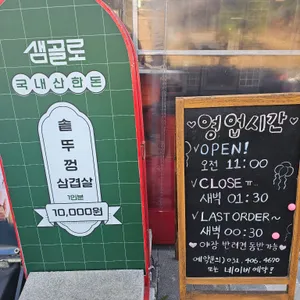 샘골로
국내산한돈
솥
뚜
껑
삼겹살
1인분
10,000원
영업시간
OPEN!
오전 11:00
CLOSE ㅠ
새벽 01:30
LAST ORDER~
새벽 00:30
야장 반려견 동반 가능
예약문의) 031. 406. 4670
또는 네이버 예약!